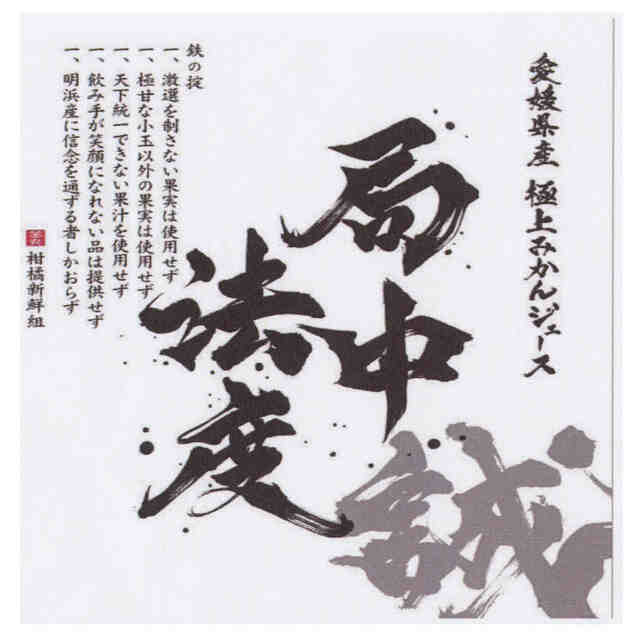 愛媛県産 極上みかんジュース
局中
法度
誠
鉄の掟
一、激選を制さない果実は使用せず
一、極甘な小玉以外の果実は使用せず
一、天下統一できない果汁を使用せず
一、飲み手が笑顔になれない品は提供せず
一、明浜産に信念を通ずる者しかおらず
柑橘新鮮組